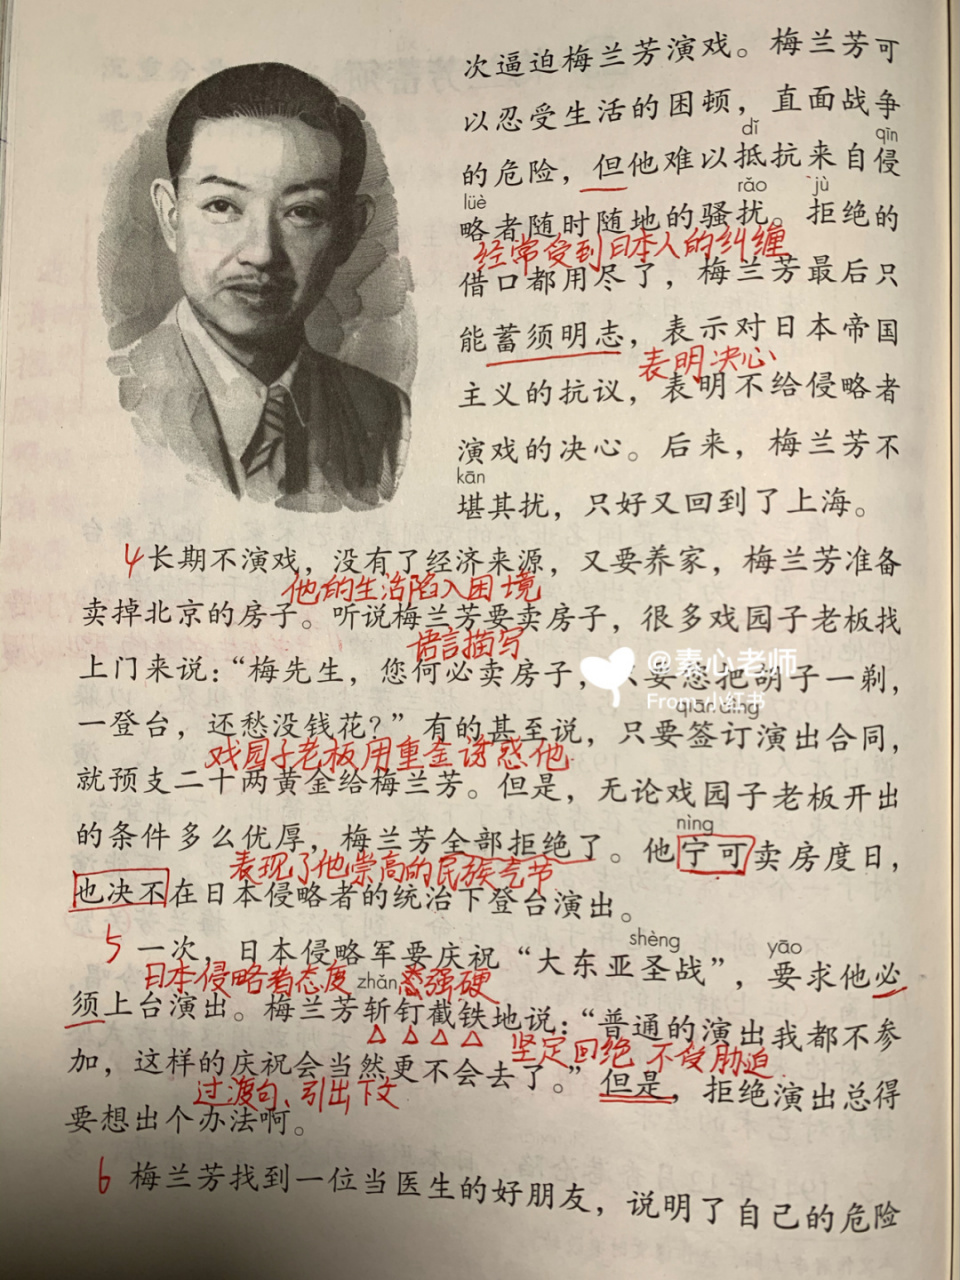 次逼迫梅兰芳演戏。梅兰芳可
以忍受生活的困顿，直面战争
dǐ
qīn
的危险，但他难以抵抗来自侵
lüè
rǎo
jù
略者随时随地的骚扰。拒绝的
经常受到日本人的纠缠
借口都用尽了，梅兰芳最后只
能蓄须明志，表示对日本帝国
表明决心
主义的抗议，表明不给侵略者
演戏的决心。后来，梅兰芳不
kān
堪其扰，只好又回到了上海。
4 长期不演戏，没有了经济来源，又要养家，梅兰芳准备
他的生活陷入困境
卖掉北京的房子。听说梅兰芳要卖房子，很多戏园子老板找
语言描写
上门来说：“梅先生，您何必卖房子，只要您把胡子一剃，
@素心老师
From 小红书
qiān dìng
一登台，还愁没钱花？”有的甚至说，只要签订演出合同，
戏园子老板用重金诱惑他
就预支二十两黄金给梅兰芳。但是，无论戏园子老板开出
nìng
的条件多么优厚，梅兰芳全部拒绝了。他宁可卖房度日，
表现了他崇高的民族气节
也决不在日本侵略者的统治下登台演出。
shèng
yāo
5 一次，日本侵略军要庆祝“大东亚圣战”，要求他必
日本侵略者态度
zhǎn
强硬
须上台演出。梅兰芳斩钉截铁地说：“普通的演出我都不参
坚定回绝 不受胁迫
加，这样的庆祝会当然更不会去了。”但是，拒绝演出总得
过渡句、引出下文
要想出个办法啊。
6 梅兰芳找到一位当医生的好朋友，说明了自己的危险